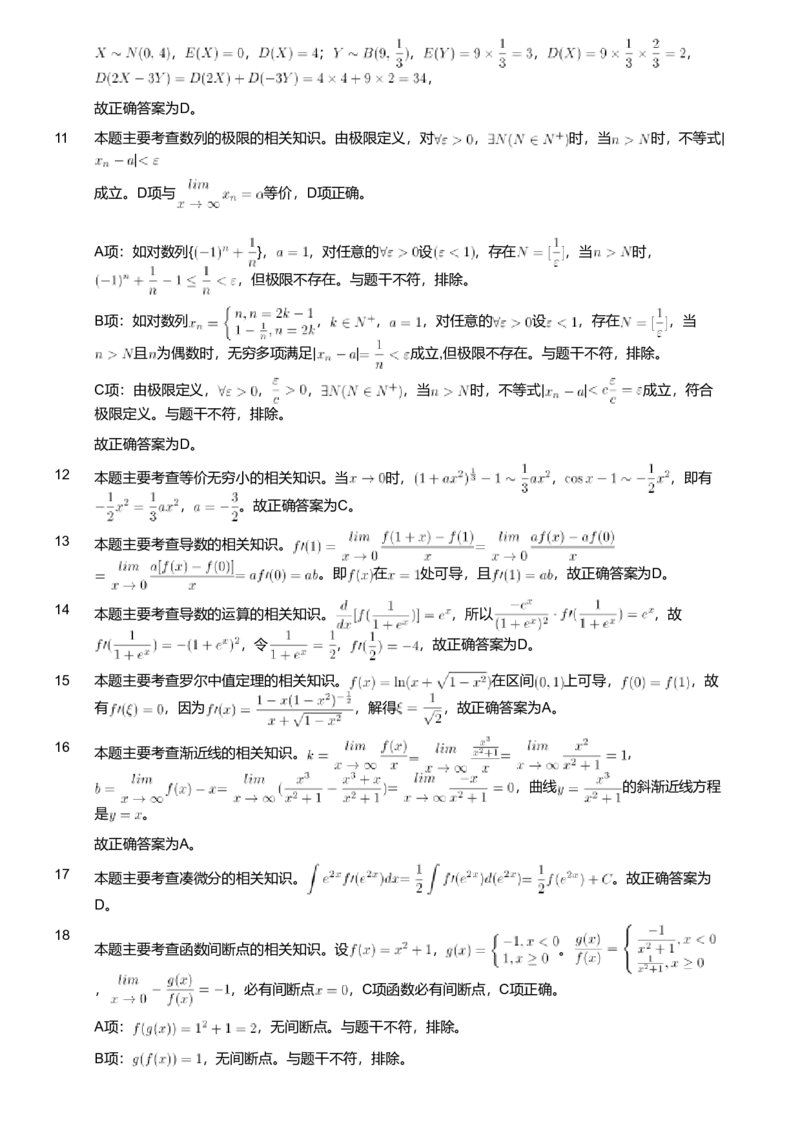 X ~ N(0, 4), E(X) = 0, D(X) = 4; Y ~ B(9, 1/3), E(Y) = 9 × 1/3 = 3, D(X) = 9 × 1/3 × 2/3 = 2,
D(2X − 3Y) = D(2X) + D(−3Y) = 4 × 4 + 9 × 2 = 34,
故正确答案为D。
11 本题主要考查数列的极限的相关知识。由极限定义，对∀ε > 0，∃N(N ∈ N⁺)时，当n > N时，不等式|
xₙ − a|< ε
成立。D项与 lim x→∞ xₙ = α等价，D项正确。
A项：如对数列{(−1)ⁿ + 1/n}，a = 1，对任意的∀ε > 0设(ε < 1)，存在N = [1/ε]，当n > N时，
(−1)ⁿ + 1/n − 1 ≤ 1/n < ε，但极限不存在。与题干不符，排除。
B项：如对数列xₙ = { n, n = 2k − 1; 1 − 1/n, n = 2k，k ∈ N⁺，a = 1，对任意的∀ε > 0设 ε < 1，存在N = [1/ε]，当
n > N且n为偶数时，无穷多项满足|xₙ − a|= 1/n < ε成立,但极限不存在。与题干不符，排除。
C项：由极限定义，∀ε > 0，ε/c > 0，∃N(N ∈ N⁺)，当n > N时，不等式|xₙ − a|< c ε/c = ε成立，符合
极限定义。与题干不符，排除。
故正确答案为D。
12 本题主要考查等价无穷小的相关知识。当x → 0时，(1 + ax²)^(1/3) − 1 ~ 1/3 ax²，cos x − 1 ~ − 1/2 x²，即有
− 1/2 x² = 1/3 ax²，a = − 3/2。故正确答案为C。
13 本题主要考查导数的相关知识。f′(1) = lim x→0 (f(1 + x) − f(1))/x = lim x→0 (af(x) − af(0))/x
= lim x→0 a[f(x) − f(0)]/x = af′(0) = ab。即f(x)在x = 1处可导，且f′(1) = ab，故正确答案为D。
14 本题主要考查导数的运算的相关知识。d/dx [f(1/(1 + eˣ))] = eˣ，所以 −eˣ/(1 + eˣ)² · f′(1/(1 + eˣ)) = eˣ，故
f′(1/(1 + eˣ)) = −(1 + eˣ)²，令 1/(1 + eˣ) = 1/2，f′(1/2) = −4，故正确答案为D。
15 本题主要考查罗尔中值定理的相关知识。f(x) = ln(x + √(1 − x²))在区间(0, 1)上可导，f(0) = f(1)，故
有f′(ξ) = 0，因为f′(x) = (1 − x(1 − x²)^(−1/2))/(x + √(1 − x²))，解得ξ = 1/√2，故正确答案为A。
16 本题主要考查渐近线的相关知识。k = lim x→∞ f(x)/x = lim x→∞ (x³/(x²+1))/x = lim x→∞ x²/(x² + 1) = 1，
b = lim x→∞ f(x) − x= lim x→∞ (x³/(x² + 1) − (x³ + x)/(x² + 1))= lim x→∞ −x/(x² + 1) = 0，曲线y = x³/(x² + 1)的斜渐近线方程
是y = x。
故正确答案为A。
17 本题主要考查凑微分的相关知识。∫ e²ˣf′(e²ˣ)dx= 1/2 ∫ f′(e²ˣ)d(e²ˣ)= 1/2 f(e²ˣ) + C。故正确答案为
D。
18 本题主要考查函数间断点的相关知识。设f(x) = x² + 1，g(x) = { −1, x < 0; 1, x ≥ 0。g(x)/f(x) = { −1/(x² + 1), x < 0; 1/(x²+1), x ≥ 0
，lim x→0 − g(x)/f(x) = −1，必有间断点x = 0，C项函数必有间断点，C项正确。
A项：f(g(x)) = 1² + 1 = 2，无间断点。与题干不符，排除。
B项：g(f(x)) = 1，无间断点。与题干不符，排除。